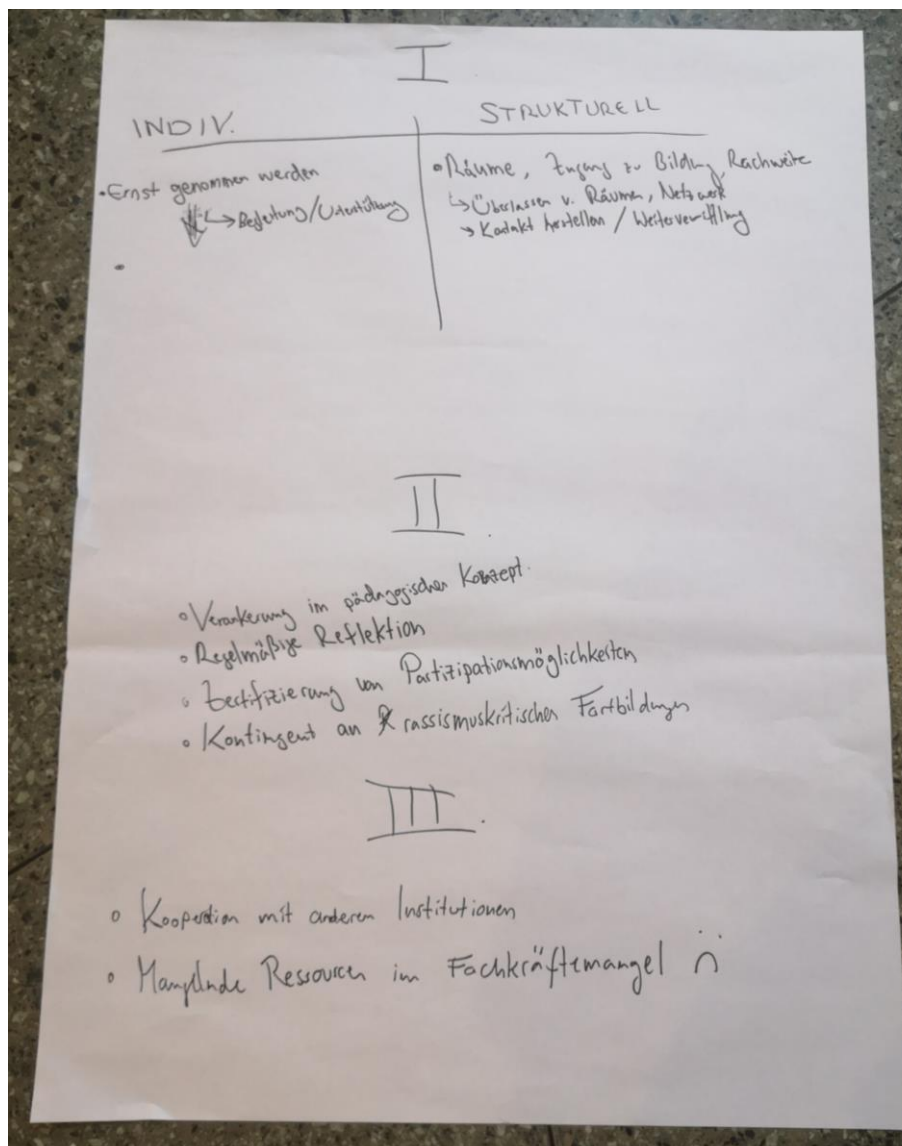 I
INDIV.
• Ernst genommen werden
↳ Begleitung/Unterstützung
•
STRUKTURELL
• Räume, Zugang zu Bildung, Reichweite
↳ Überlassen v. Räumen, Netzwerk
→ Kontakt herstellen / Weitervermittlung
II.
• Verankerung im pädagogischen Konzept.
• Regelmäßige Reflektion
• Zertifizierung von Partizipationsmöglichkeiten
• Kontingent an rassismuskritischen Fortbildungen
III.
• Kooperation mit anderen Institutionen
• Mangelnde Ressourcen im Fachkräftemangel :(